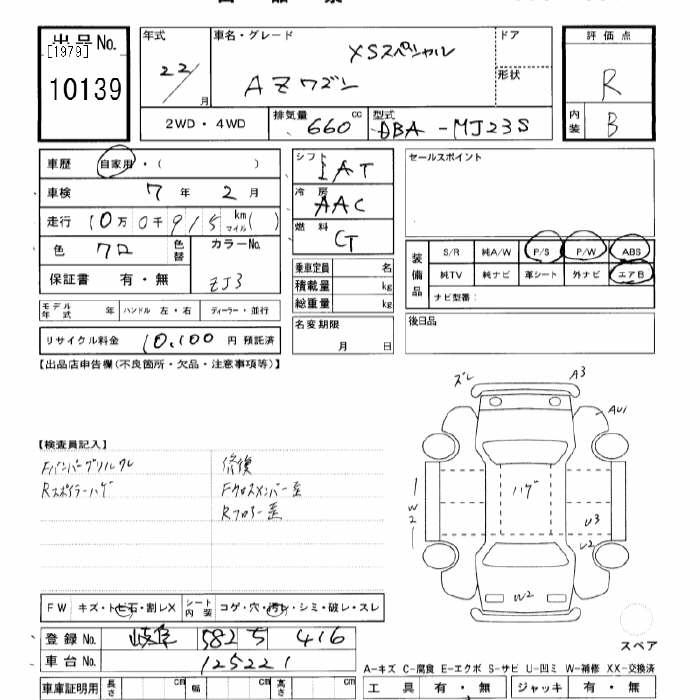 出品No.
[1979]
10139
年式 22/ 月
車名・グレード XSスペシャル
AZワゴン
ドア
形状
2WD・4WD
排気量 660 cc
型式 DBA-MJ23S
評価点
R
内装 B
車歴 自家用・( )
車検 7年 2月
走行 10万0千915 km マイル( )
色 クロ 色替
カラーNo. ZJ3
保証書 有・無
モデル年式 年 ハンドル 左・右 ディーラー・並行
リサイクル料金 10,100 円 預託済
シフト IAT
冷房 AAC
燃料 G
乗車定員 名
積載量 kg
総重量 kg
名変期限
月 日
セールスポイント
装備品
S/R 純A/W P/S P/W ABS
純TV 純ナビ 革シート 外ナビ エアB
ナビ型番:
後日品
【出品店申告欄(不良箇所・欠品・注意事項等)】
【検査員記入】
Fバンパーグリルワレ
Rスポイラーハゲ
修復
Fクロスメンバー歪
Rフロアー歪
ズレ
A3
AU1
ハゲ
W2
U3
U2
W2
スペア
FW キズ・トビ石・割レX
シート内装 コゲ・穴・汚レ・シミ・破レ・スレ
登録No. 岐阜 582 ち 416
車台No. 125221
車庫証明用 長さ cm 幅 cm 高さ cm
A-キズ C-腐食 E-エクボ S-サビ U-凹ミ W-補修 XX-交換済
工具 有・無 ジャッキ 有・無